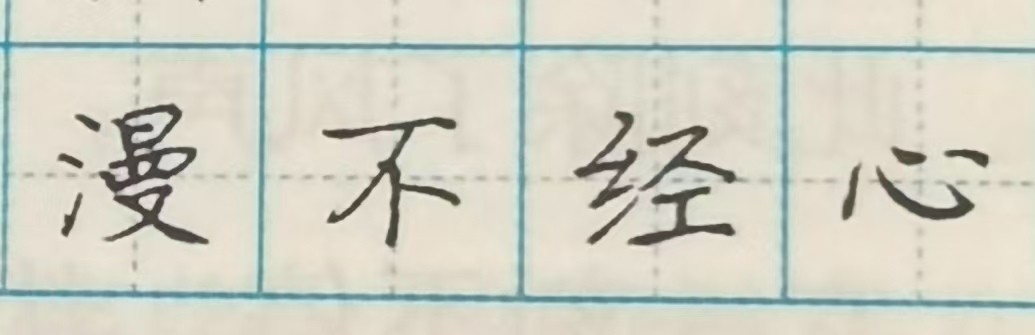 漫不经心